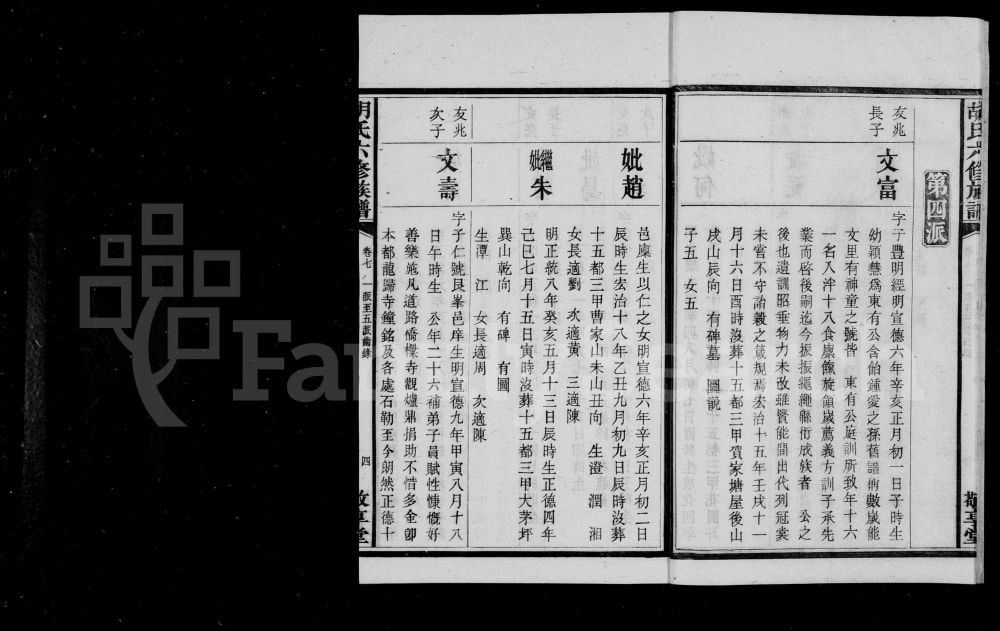 胡氏六修族譜
敬享堂
第四派
友兆
長子
文富
字子豐明經明宣德六年辛亥正月初一日子時生
幼穎慧爲東有公含飴鍾愛之孫舊譜稱數歲能
文里有神童之號皆 東有公庭訓所致年十六
一名入泮十八食廩餼旋領歲薦義方訓子承先
業而啓後嗣迄今振振繩繩縣衍成族者 公之
後也遺訓昭垂物力未改雖賢能間出代列冠裳
未嘗不守詒穀之箴規焉宏治十五年壬戌十一
月十六日酉時沒葬十五都三甲賀家塘屋後山
戌山辰向 有碑墓 圖説
子五 女五
妣趙
邑廩生以仁之女明宣德六年辛亥正月初二日
辰時生宏治十八年乙丑九月初九日辰時沒葬
十五都三甲曹家山未山丑向 生澄 潤 湘
女長適劉 次適黃 三適陳
繼妣朱
明正統八年癸亥五月十三日辰時生正德四年
己巳七月十五日寅時沒葬十五都三甲大茅坪
巽山乾向 有碑 有圖
生潭 江 女長適周 次適陳
友兆
次子
文壽
字子仁號艮峯邑庠生明宣德九年甲寅八月十八
日午時生 公年二十六補弟子員賦性慷慨好
善樂施凡道路橋樑寺觀爐鼎捐助不惜多金卽
本都龍歸寺鐘銘及各處石勒至今朗然正德十
胡氏六修族譜
卷七
一派至五派齒錄
四
敬享堂